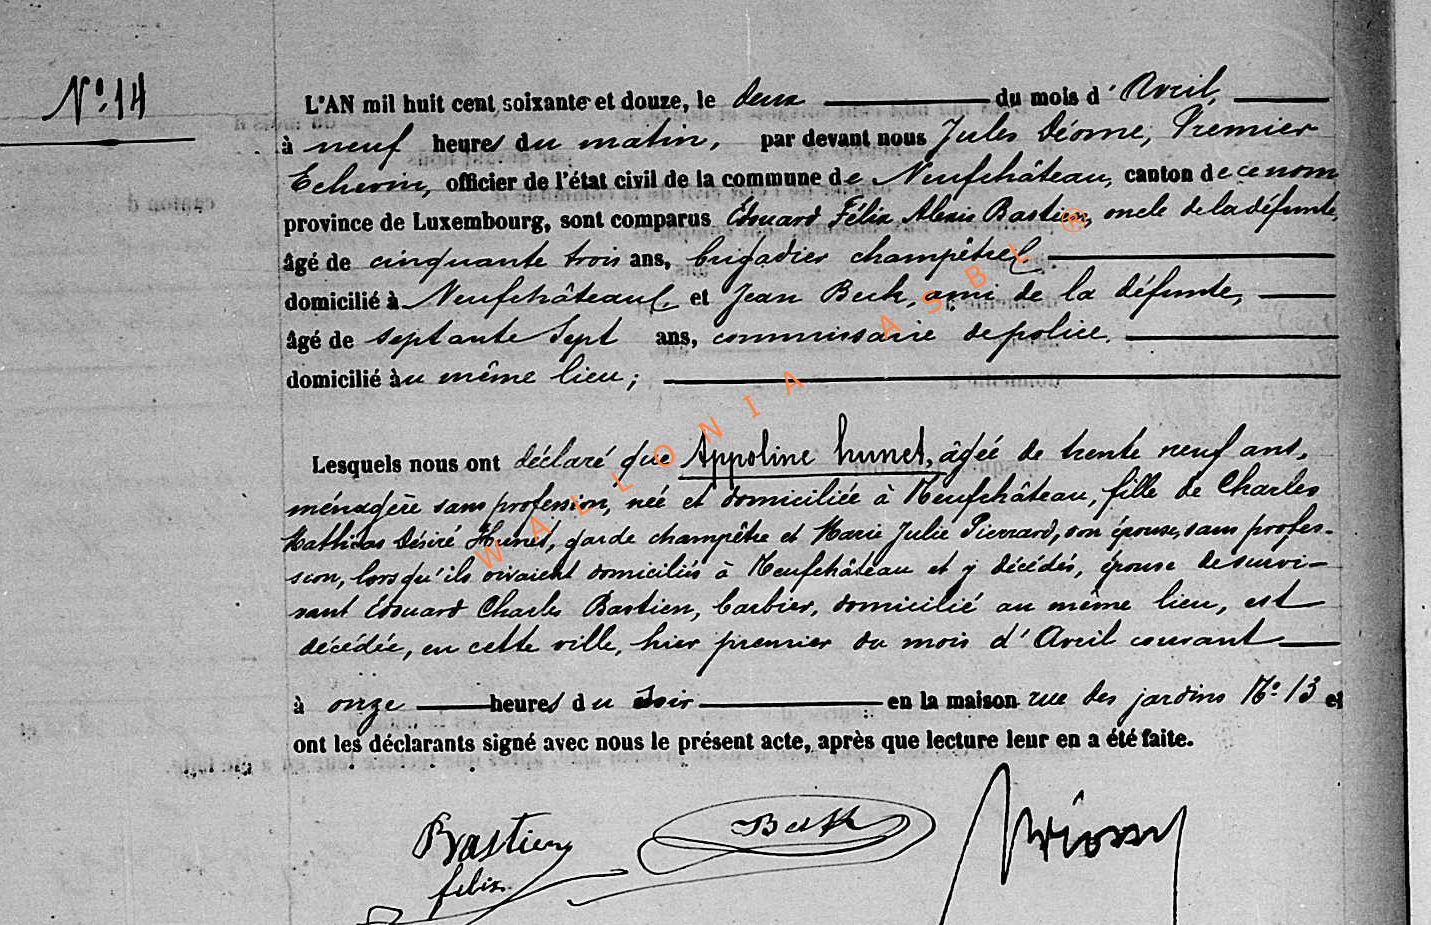 N° 14
L'AN mil huit cent soixante et douze, le deux du mois d' Avril,
à neuf heures du matin, par devant nous Jules Déome, Premier
Echevin, officier de l'état civil de la commune de Neufchâteau, canton de ce nom
province de Luxembourg, sont comparus Edouard Félix Alexis Bastien, oncle de la défunte,
âgé de cinquante trois ans, brigadier champêtre
domicilié à Neufchâteau et Jean Beck, ami de la défunte,
âgé de septante sept ans, commissaire de police
domicilié au même lieu;
Lesquels nous ont déclaré que Appoline hunet, âgée de trente neuf ans,
ménagère sans profession, née et domiciliée à Neufchâteau, fille de Charles
Mathias Désiré Hunet, garde champêtre et Marie Julie Pierrard, son épouse, sans profes-
sion, lorsqu'ils vivaient domiciliés à Neufchâteau et y décédés, épouse de survi-
vant Edouard Charles Bastien, barbier, domicilié au même lieu, est
décédée, en cette ville, hier premier du mois d'Avril courant
à onze heures du soir en la maison rue des jardins N° 13 et
ont les déclarants signé avec nous le présent acte, après que lecture leur en a été faite.
Bastien Beck
felix
WALLONIA ASBL ®